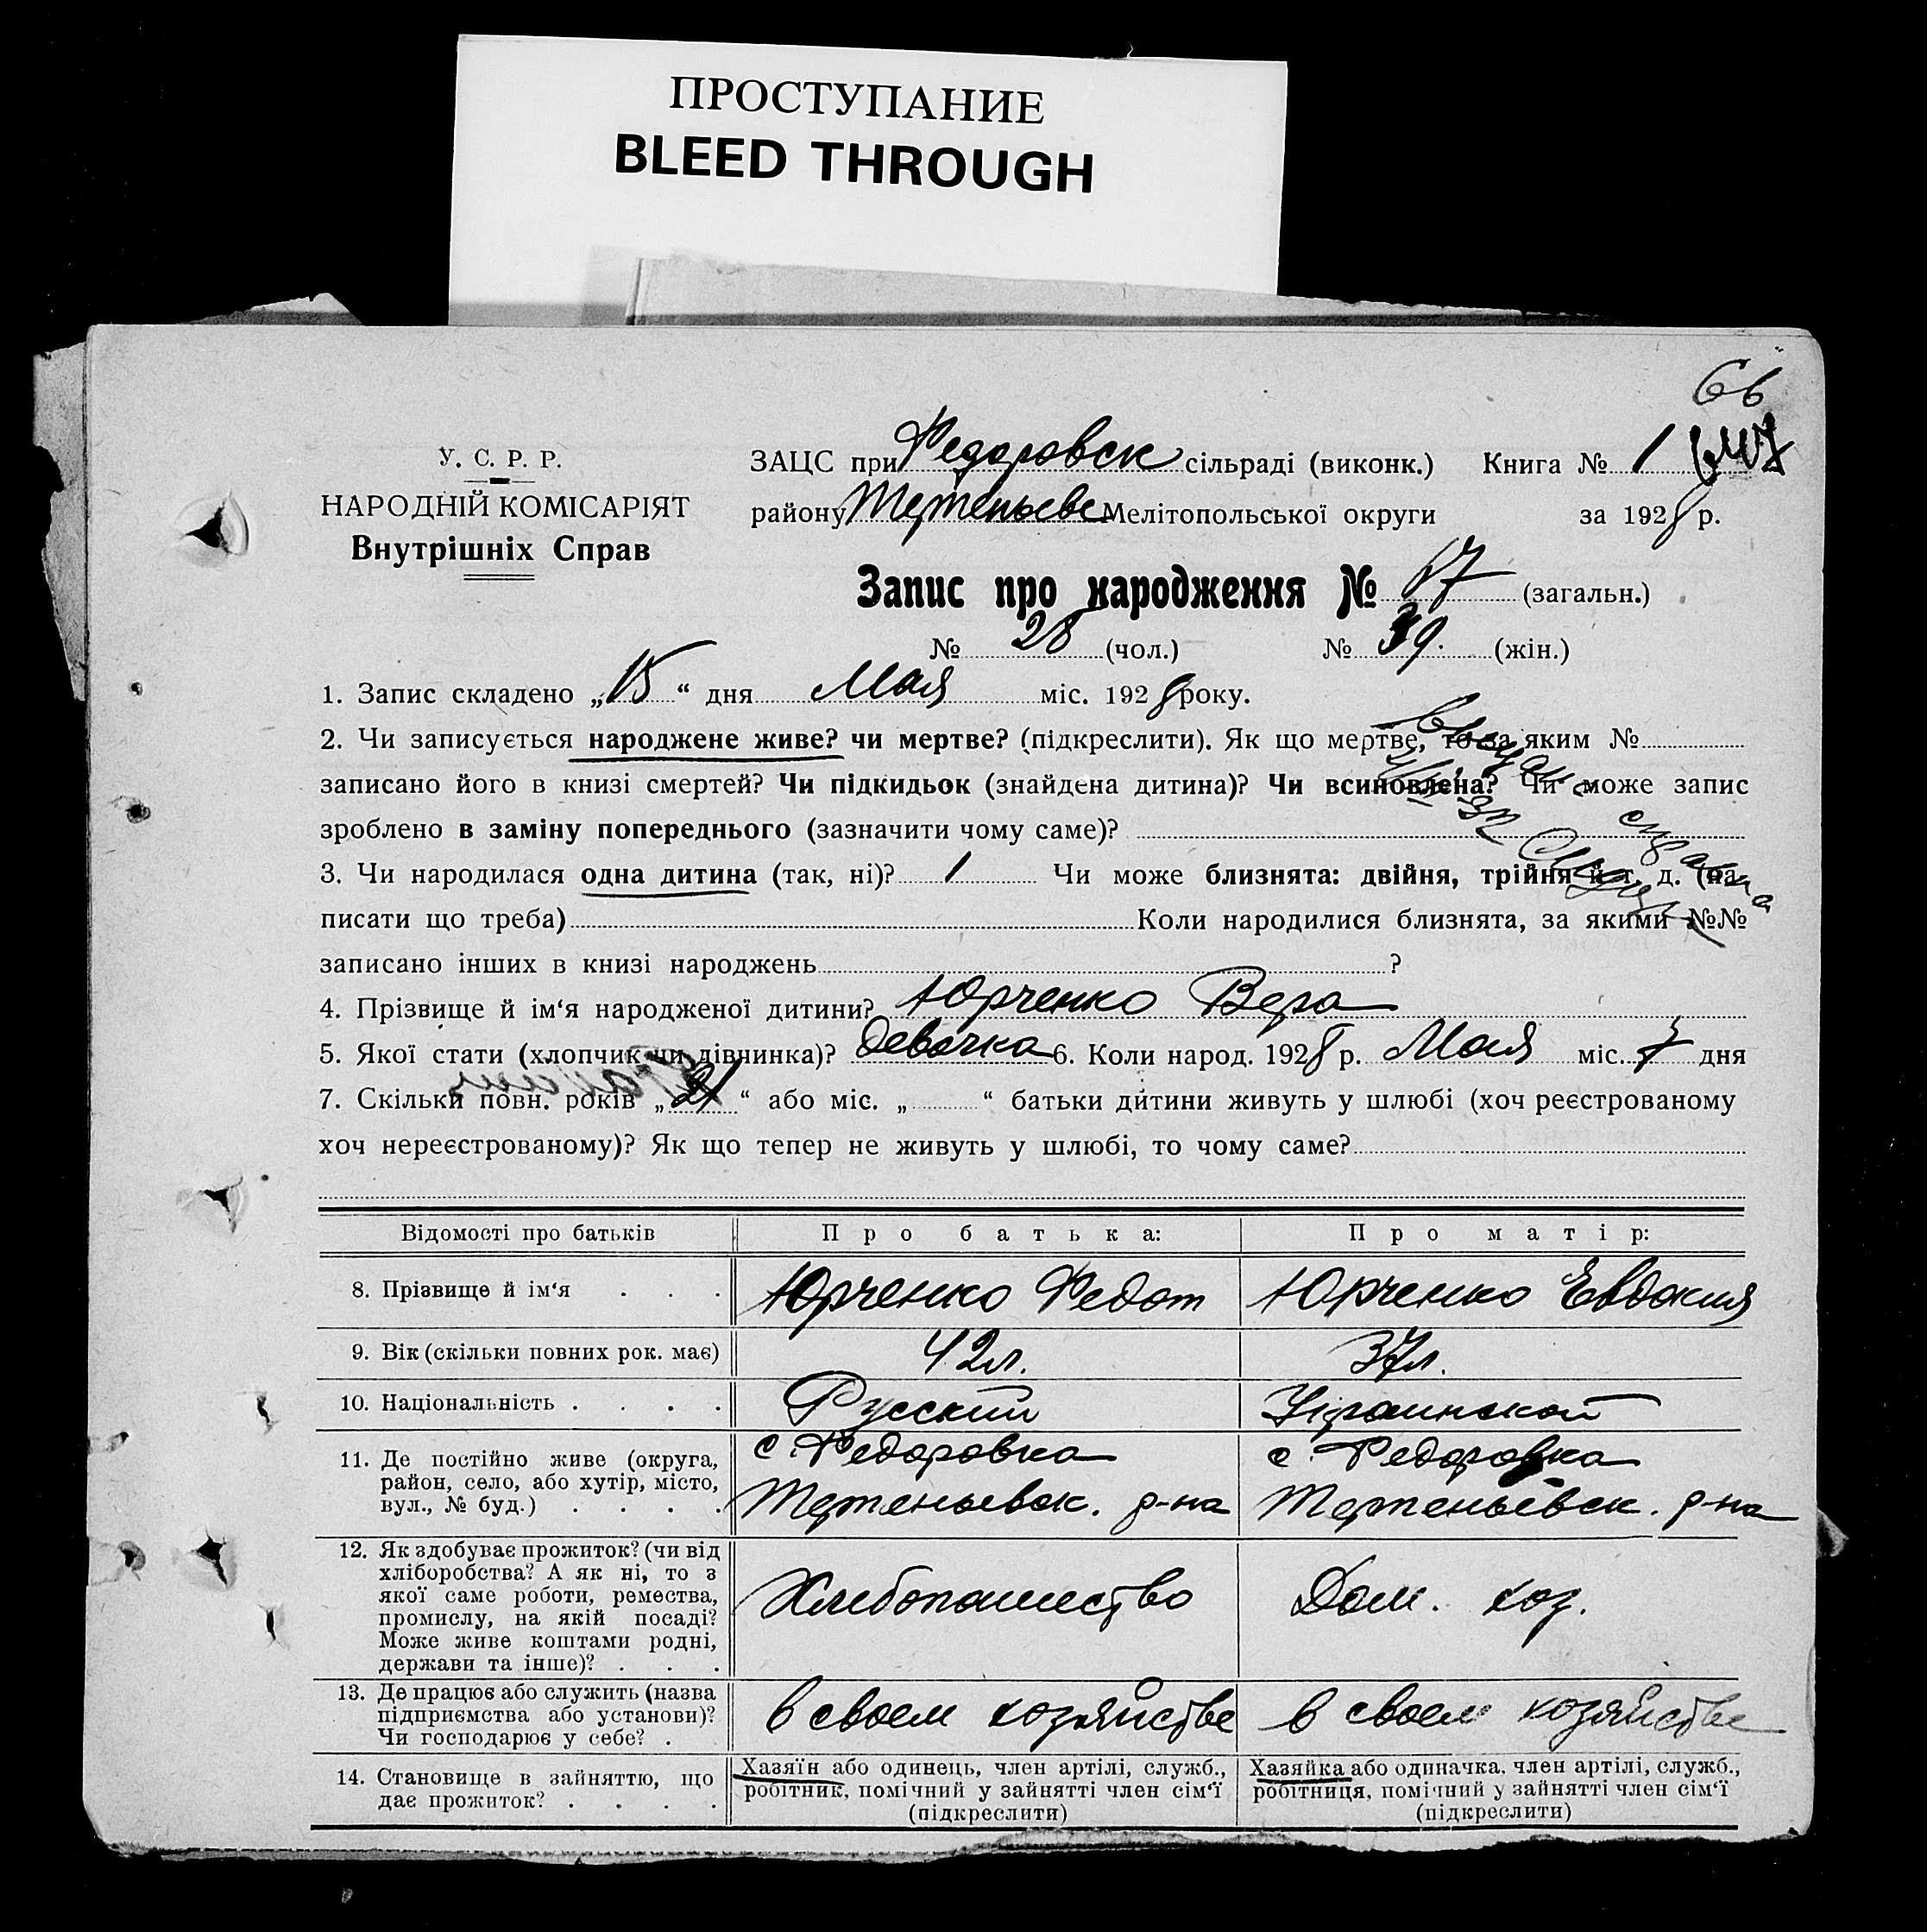 ПРОСТУПАНИЕ
BLEED THROUGH
66
У. С. Р. Р.
НАРОДНІЙ КОМІСАРІЯТ
Внутрішніх Справ
ЗАЦС при Федоровск сільраді (виконк.) Книга № 1
району Мелітопольської округи за 1928 р.
Запис про народження № 67 (загальн.)
№ 28 (чол.) № 39. (жін.)
1. Запис складено „15“ дня Мая міс. 1928 року.
2. Чи записується народжене живе? чи мертве? (підкреслити). Як що мертве, то за яким №
записано його в книзі смертей? Чи підкидьок (знайдена дитина)? Чи всиновлена? Чи може запис
зроблено в заміну попереднього (зазначити чому саме)?
Выдана справка
3. Чи народилася одна дитина (так, ні)? 1 Чи може близнята: двійня, трійня й т. д. (на-
писати що треба) Коли народилися близнята, за якими №№
записано інших в книзі народжень ?
4. Прізвище й ім‘я народженої дитини? Юрченко Вера
5. Якої стати (хлопчик чи дівчинка)? девочка 6. Коли народ. 1928 р. Мая міс. 7 дня
7. Скільки повн. років „21“ або міс. „ “ батьки дитини живуть у шлюбі (хоч реєстрованому
хоч нереєстрованому)? Як що тепер не живуть у шлюбі, то чому саме?
Відомості про батьків Про батька: Про матір:
8. Прізвище й ім‘я . . . Юрченко Федот Юрченко Евдокия
9. Вік (скільки повних рок. має) 42 л. 37 л.
10. Національність . . . . Русский Украинской
11. Де постійно живе (округа,
район, село, або хутір, місто,
вул., № буд.) . . . .
с. Федоровка
Терпеньевск. р-на
с. Федоровка
Терпеньевск. р-на
12. Як здобуває прожиток? (чи від
хліборобства? А як ні, то з
якої саме роботи, ремества,
промислу, на якій посаді?
Може живе коштами родні,
держави та інше)? . . .
Хлебопашество
Дом. хоз.
13. Де працює або служить (назва
підприємства або установи)?
Чи господарює у себе? .
в своем хозяйстве
в своем хозяйстве
14. Становище в зайняттю, що
дає прожиток? . . . .
Хазяїн або одинець, член артілі, служб.,
робітник, помічний у зайнятті член сім‘ї
(підкреслити)
Хазяйка або одиначка, член артілі, служб.,
робітниця, помічний у зайнятті член сім‘ї
(підкреслити)